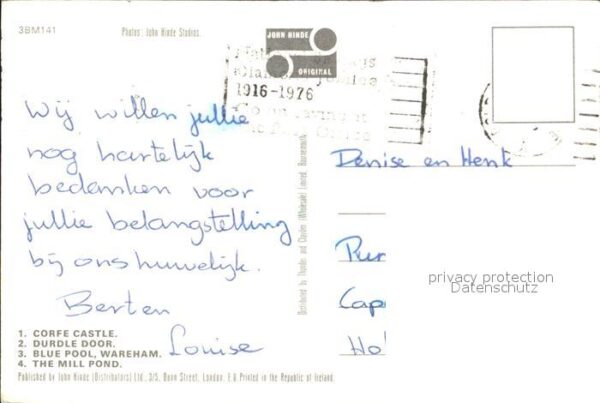 3BM141
Photos: John Hinde Studios.
JOHN HINDE
ORIGINAL
1916-1976
Wij willen jullie
nog hartelijk
bedanken voor
jullie belangstelling
bij ons huwelijk.
Berten
Louise
Denise en Henk
Pur
Cap
Ho
privacy protection
Datenschutz
Distributed by Thunder and Clayden (Wholesale) Limited, Bournemouth.
1. CORFE CASTLE.
2. DURDLE DOOR.
3. BLUE POOL, WAREHAM.
4. THE MILL POND.
Published by John Hinde (Distributors) Ltd., 3/5, Dunn Street, London, E.8. Printed in the Republic of Ireland.